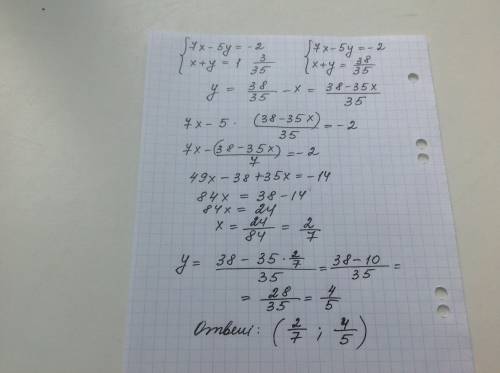 { 7x - 5y = -2   { 7x - 5y = -2
{ x + y = 1 3/35   { x + y = 38/35
y = 38/35 - x = (38 - 35x)/35
7x - 5 · (38 - 35x)/35 = -2
7x - (38 - 35x)/7 = -2
49x - 38 + 35x = -14
84x = 38 - 14
84x = 24
x = 24/84 = 2/7
y = (38 - 35 · 2/7)/35 = (38 - 10)/35 =
= 28/35 = 4/5
Ответ: (2/7 ; 4/5)